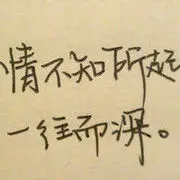 情不知所起
一往而深。